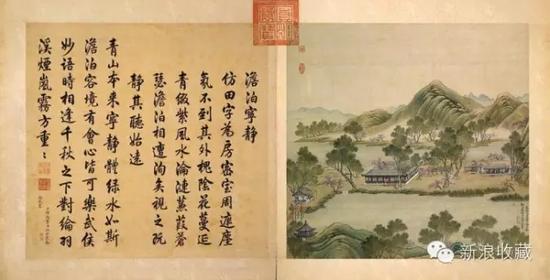 澹泊寧靜
仿田字為房密室周遮塵
氛不到其外槐陰花蔓延
青綴紫風水淪漣蒹葭蒼
瑟澹泊相遭洵矣視之既
靜其聽始遠
青山本來寧靜體綠水如斯
澹泊容境有會心皆可樂武侯
妙語時相逢千秋之下對綸羽
溪煙嵐霧方重〻
新浪收藏